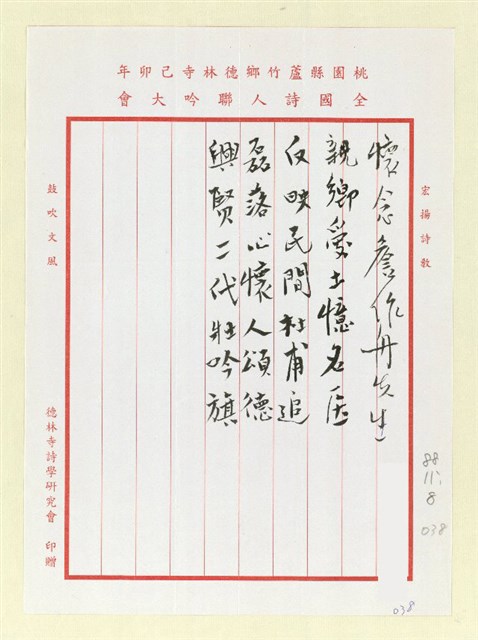 桃園縣蘆竹鄉德林寺己卯年
全國詩人聯吟大會
宏揚詩教
懷念詹作舟先生
親鄉愛土憶名医
反映民間杜甫追
磊落心懷人頌德
興賢二代壯吟旗
鼓吹文風
德林寺詩學研究會 印贈
88
11;
8
038
038